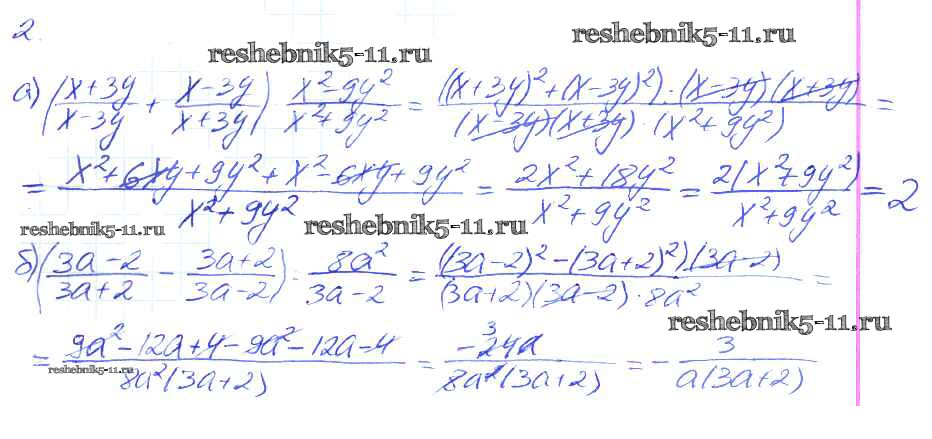 2.
reshebnik5-11.ru
reshebnik5-11.ru
а) ((x+3y)/(x-3y) + (x-3y)/(x+3y)) · (x²-9y²)/(x²+9y²) = ((x+3y)²+(x-3y)²)·(x-3y)(x+3y)/((x-3y)(x+3y)·(x²+9y²)) =
= (x²+6xy+9y²+x²-6xy+9y²)/(x²+9y²) = (2x²+18y²)/(x²+9y²) = 2(x²+9y²)/(x²+9y²) = 2
reshebnik5-11.ru
reshebnik5-11.ru
б) ((3a-2)/(3a+2) - (3a+2)/(3a-2)) · 8a²/(3a-2) = ((3a-2)²-(3a+2)²)(3a-2)/((3a+2)(3a-2)·8a²) =
reshebnik5-11.ru
= (9a²-12a+4-9a²-12a-4)/(8a²(3a+2)) = -24a/(8a²(3a+2)) = -3/(a(3a+2))
reshebnik5-11.ru